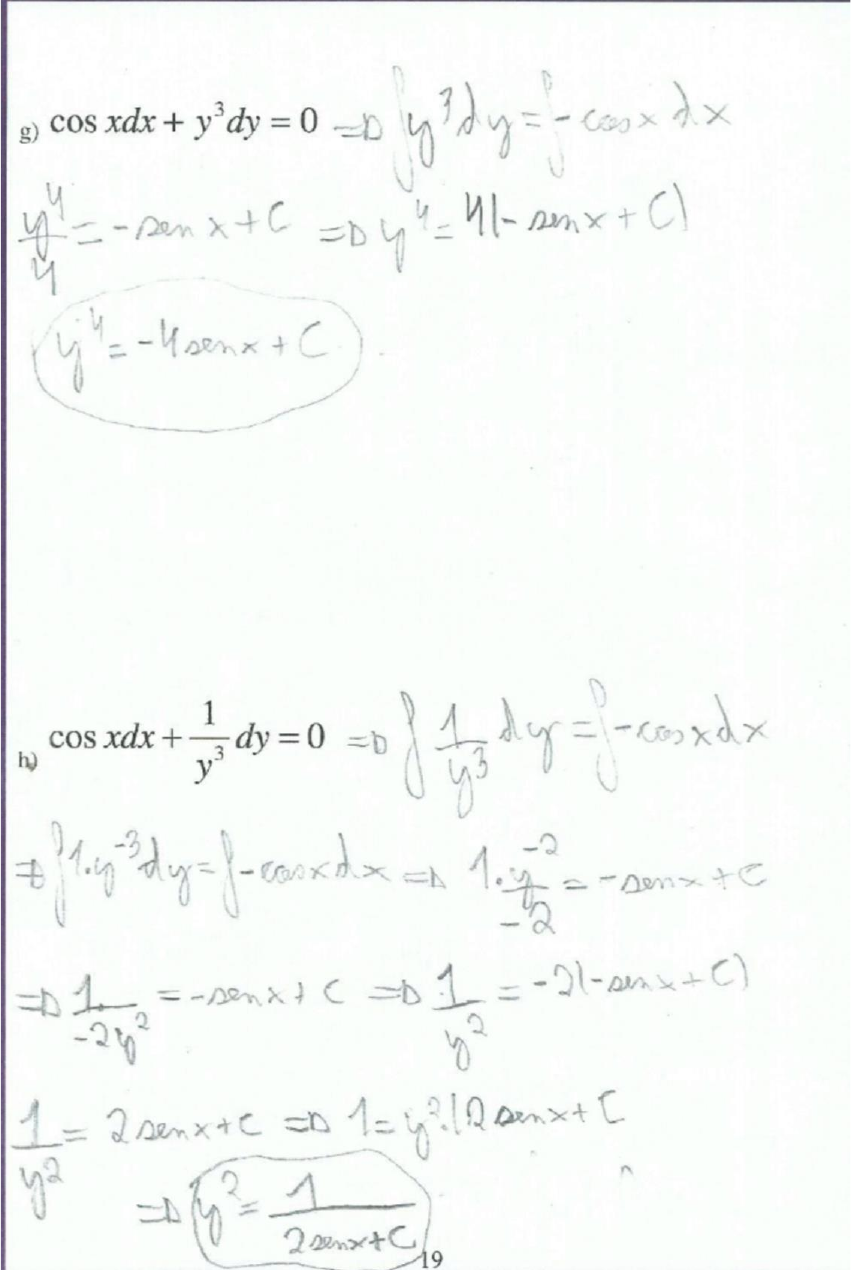 g) cos xdx + y³dy = 0 ⇒ ∫y³dy = ∫-cosx dx
y⁴/4 = -sen x + C ⇒ y⁴ = 4(-senx + C)
y⁴ = -4senx + C
h) cos xdx + 1/y³ dy = 0 ⇒ ∫ 1/y³ dy = ∫-cosxdx
⇒ ∫1.y⁻³dy = ∫-cosxdx ⇒ 1.y⁻²/-2 = -senx + C
⇒ 1/-2y² = -senx + C ⇒ 1/y² = -2(-senx + C)
1/y² = 2senx + C ⇒ 1 = y².(2senx + C
⇒ y² = 1/2senx + C
19